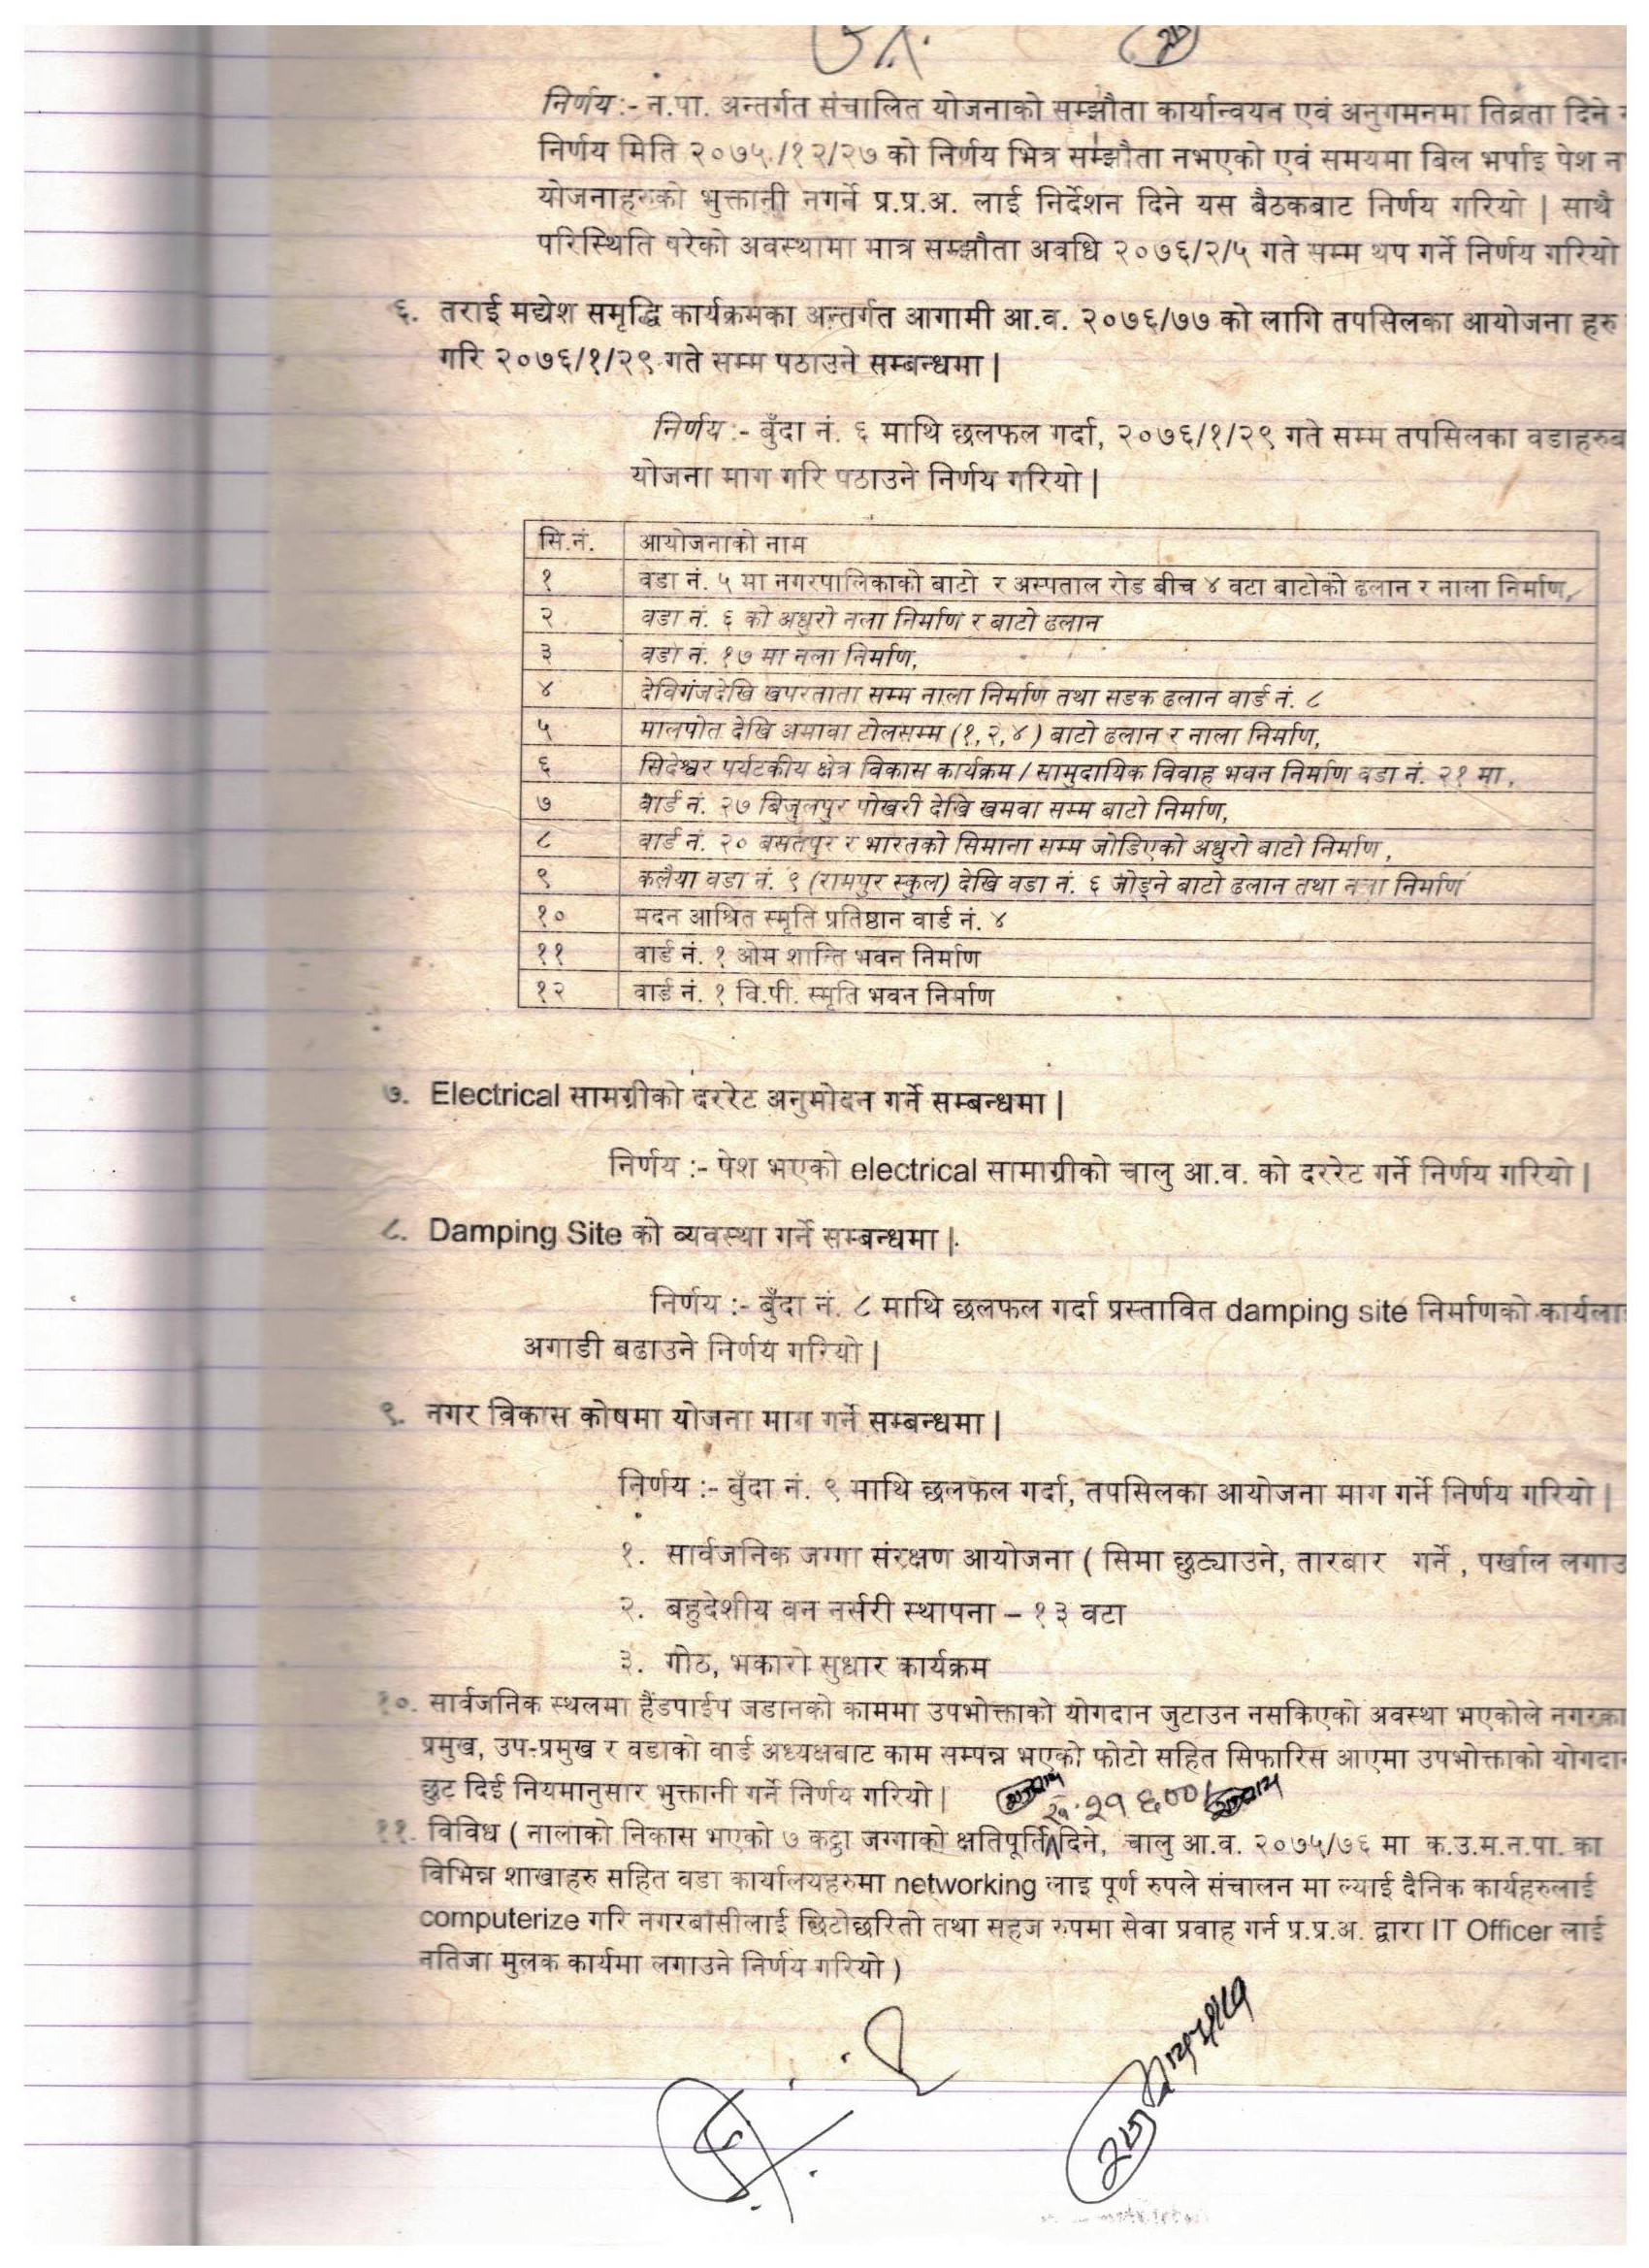 निर्णय :- न.पा. अन्तर्गत संचालित योजनाको सम्झौता कार्यान्वयन एवं अनुगमनमा तिव्रता दिने
निर्णय मिति २०७५/१२/२७ को निर्णय भित्र सम्झौता नभएको एवं समयमा बिल भर्पाइ पेश
योजनाहरुको भुक्तानी नगर्ने प्र.प्र.अ. लाई निर्देशन दिने यस बैठकबाट निर्णय गरियो | साथै
परिस्थिति परेको अवस्थामा मात्र सम्झौता अवधि २०७६/२/५ गते सम्म थप गर्ने निर्णय गरियो
६. तराई मद्येश समृद्धि कार्यक्रमका अन्तर्गत आगामी आ.व. २०७६/७७ को लागि तपसिलका आयोजना हरु
गरि २०७६/१/२९ गते सम्म पठाउने सम्बन्धमा |
निर्णय :- बुँदा नं. ६ माथि छलफल गर्दा, २०७६/१/२९ गते सम्म तपसिलका
योजना माग गरि पठाउने निर्णय गरियो |
सि.नं. आयोजनाको नाम
१ वडा नं. ५ मा नगरपालिकाको बाटो र अस्पताल रोड बीच ४ वटा बाटोको ढलान र नाला निर्माण,
२ वडा नं. ६ को अधुरो नला निर्माण र बाटो ढलान
३ वडा नं. १७ मा नला निर्माण,
४ देविगंजदेखि खपरताता सम्म नाला निर्माण तथा सडक ढलान वार्ड नं. ८
५ मालपोत देखि अमावा टोलसम्म (१,२,४) बाटो ढलान र नाला निर्माण,
६ सिदेश्वर पर्यटकीय क्षेत्र विकास कार्यक्रम / सामुदायिक विवाह भवन निर्माण वडा नं. २१ मा,
७ वार्ड नं. २७ बिजुलपुर पोखरी देखि खमवा सम्म बाटो निर्माण,
८ वार्ड नं. २० बसतपुर र भारतको सिमाना सम्म जोडिएको अधुरो बाटो निर्माण,
९ कलैया वडा नं. ९ (रामपुर स्कुल) देखि वडा नं. ६ जोड्ने बाटो ढलान तथा नला निर्माण
१० मदन आश्रित स्मृति प्रतिष्ठान वार्ड नं. ४
११ वार्ड नं. १ ओम शान्ति भवन निर्माण
१२ वार्ड नं. १ वि.पी. स्मृति भवन निर्माण
७. Electrical सामग्रीको दररेट अनुमोदन गर्ने सम्बन्धमा |
निर्णय :- पेश भएको electrical सामाग्रीको चालु आ.व. को दररेट गर्ने निर्णय गरियो |
८. Damping Site को व्यवस्था गर्ने सम्बन्धमा |
निर्णय :- बुँदा नं. ८ माथि छलफल गर्दा प्रस्तावित damping site निर्माणको
अगाडी बढाउने निर्णय गरियो |
९. नगर विकास कोषमा योजना माग गर्ने सम्बन्धमा |
निर्णय :- बुँदा नं. ९ माथि छलफल गर्दा, तपसिलका आयोजना माग गर्ने निर्णय गरियो |
१. सार्वजनिक जग्गा संरक्षण आयोजना ( सिमा छुट्याउने, तारबार गर्ने , पर्खाल
२. बहुदेशीय वन नर्सरी स्थापना – १३ वटा
३. गोठ, भकारो सुधार कार्यक्रम
१०. सार्वजनिक स्थलमा हैंडपाईप जडानको काममा उपभोक्ताको योगदान जुटाउन नसकिएको अवस्था भएकोले
प्रमुख, उप-प्रमुख र वडाको वार्ड अध्यक्षबाट काम सम्पन्न भएको फोटो सहित सिफारिस आएमा उपभोक्ताको
छुट दिई नियमानुसार भुक्तानी गर्ने निर्णय गरियो |
रु. २१६००/
११. विविध ( नालाको निकास भएको ७ कट्ठा जग्गाको क्षतिपूर्ति दिने, चालु आ.व. २०७५/७६ मा क.उ.म.न.पा. का
विभिन्न शाखाहरु सहित वडा कार्यालयहरुमा networking लाइ पूर्ण रुपले संचालन मा ल्याई दैनिक कार्यहरुलाई
computerize गरि नगरबासीलाई छिटोछरितो तथा सहज रुपमा सेवा प्रवाह गर्न प्र.प्र.अ. द्वारा IT Officer लाई
नतिजा मुलक कार्यमा लगाउने निर्णय गरियो )